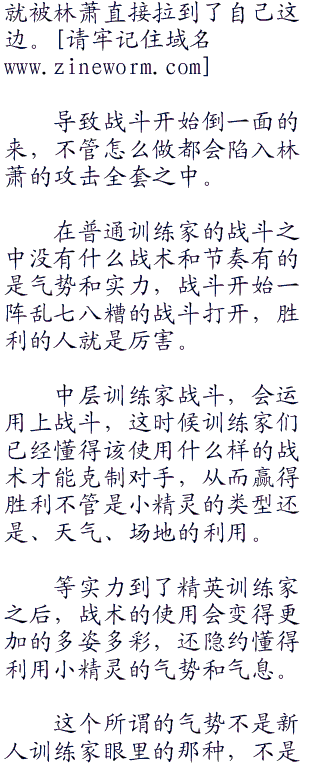 就被林萧直接拉到了自己这
边。[请牢记住域名
www.zineworm.com]
导致战斗开始倒一面的
来，不管怎么做都会陷入林
萧的攻击全套之中。
在普通训练家的战斗之
中没有什么战术和节奏有的
是气势和实力，战斗开始一
阵乱七八糟的战斗打开，胜
利的人就是厉害。
中层训练家战斗，会运
用上战斗，这时候训练家们
已经懂得该使用什么样的战
术才能克制对手，从而赢得
胜利不管是小精灵的类型还
是、天气、场地的利用。
等实力到了精英训练家
之后，战术的使用会变得更
加的多姿多彩，还隐约懂得
利用小精灵的气势和气息。
这个所谓的气势不是新
人训练家眼里的那种，不是